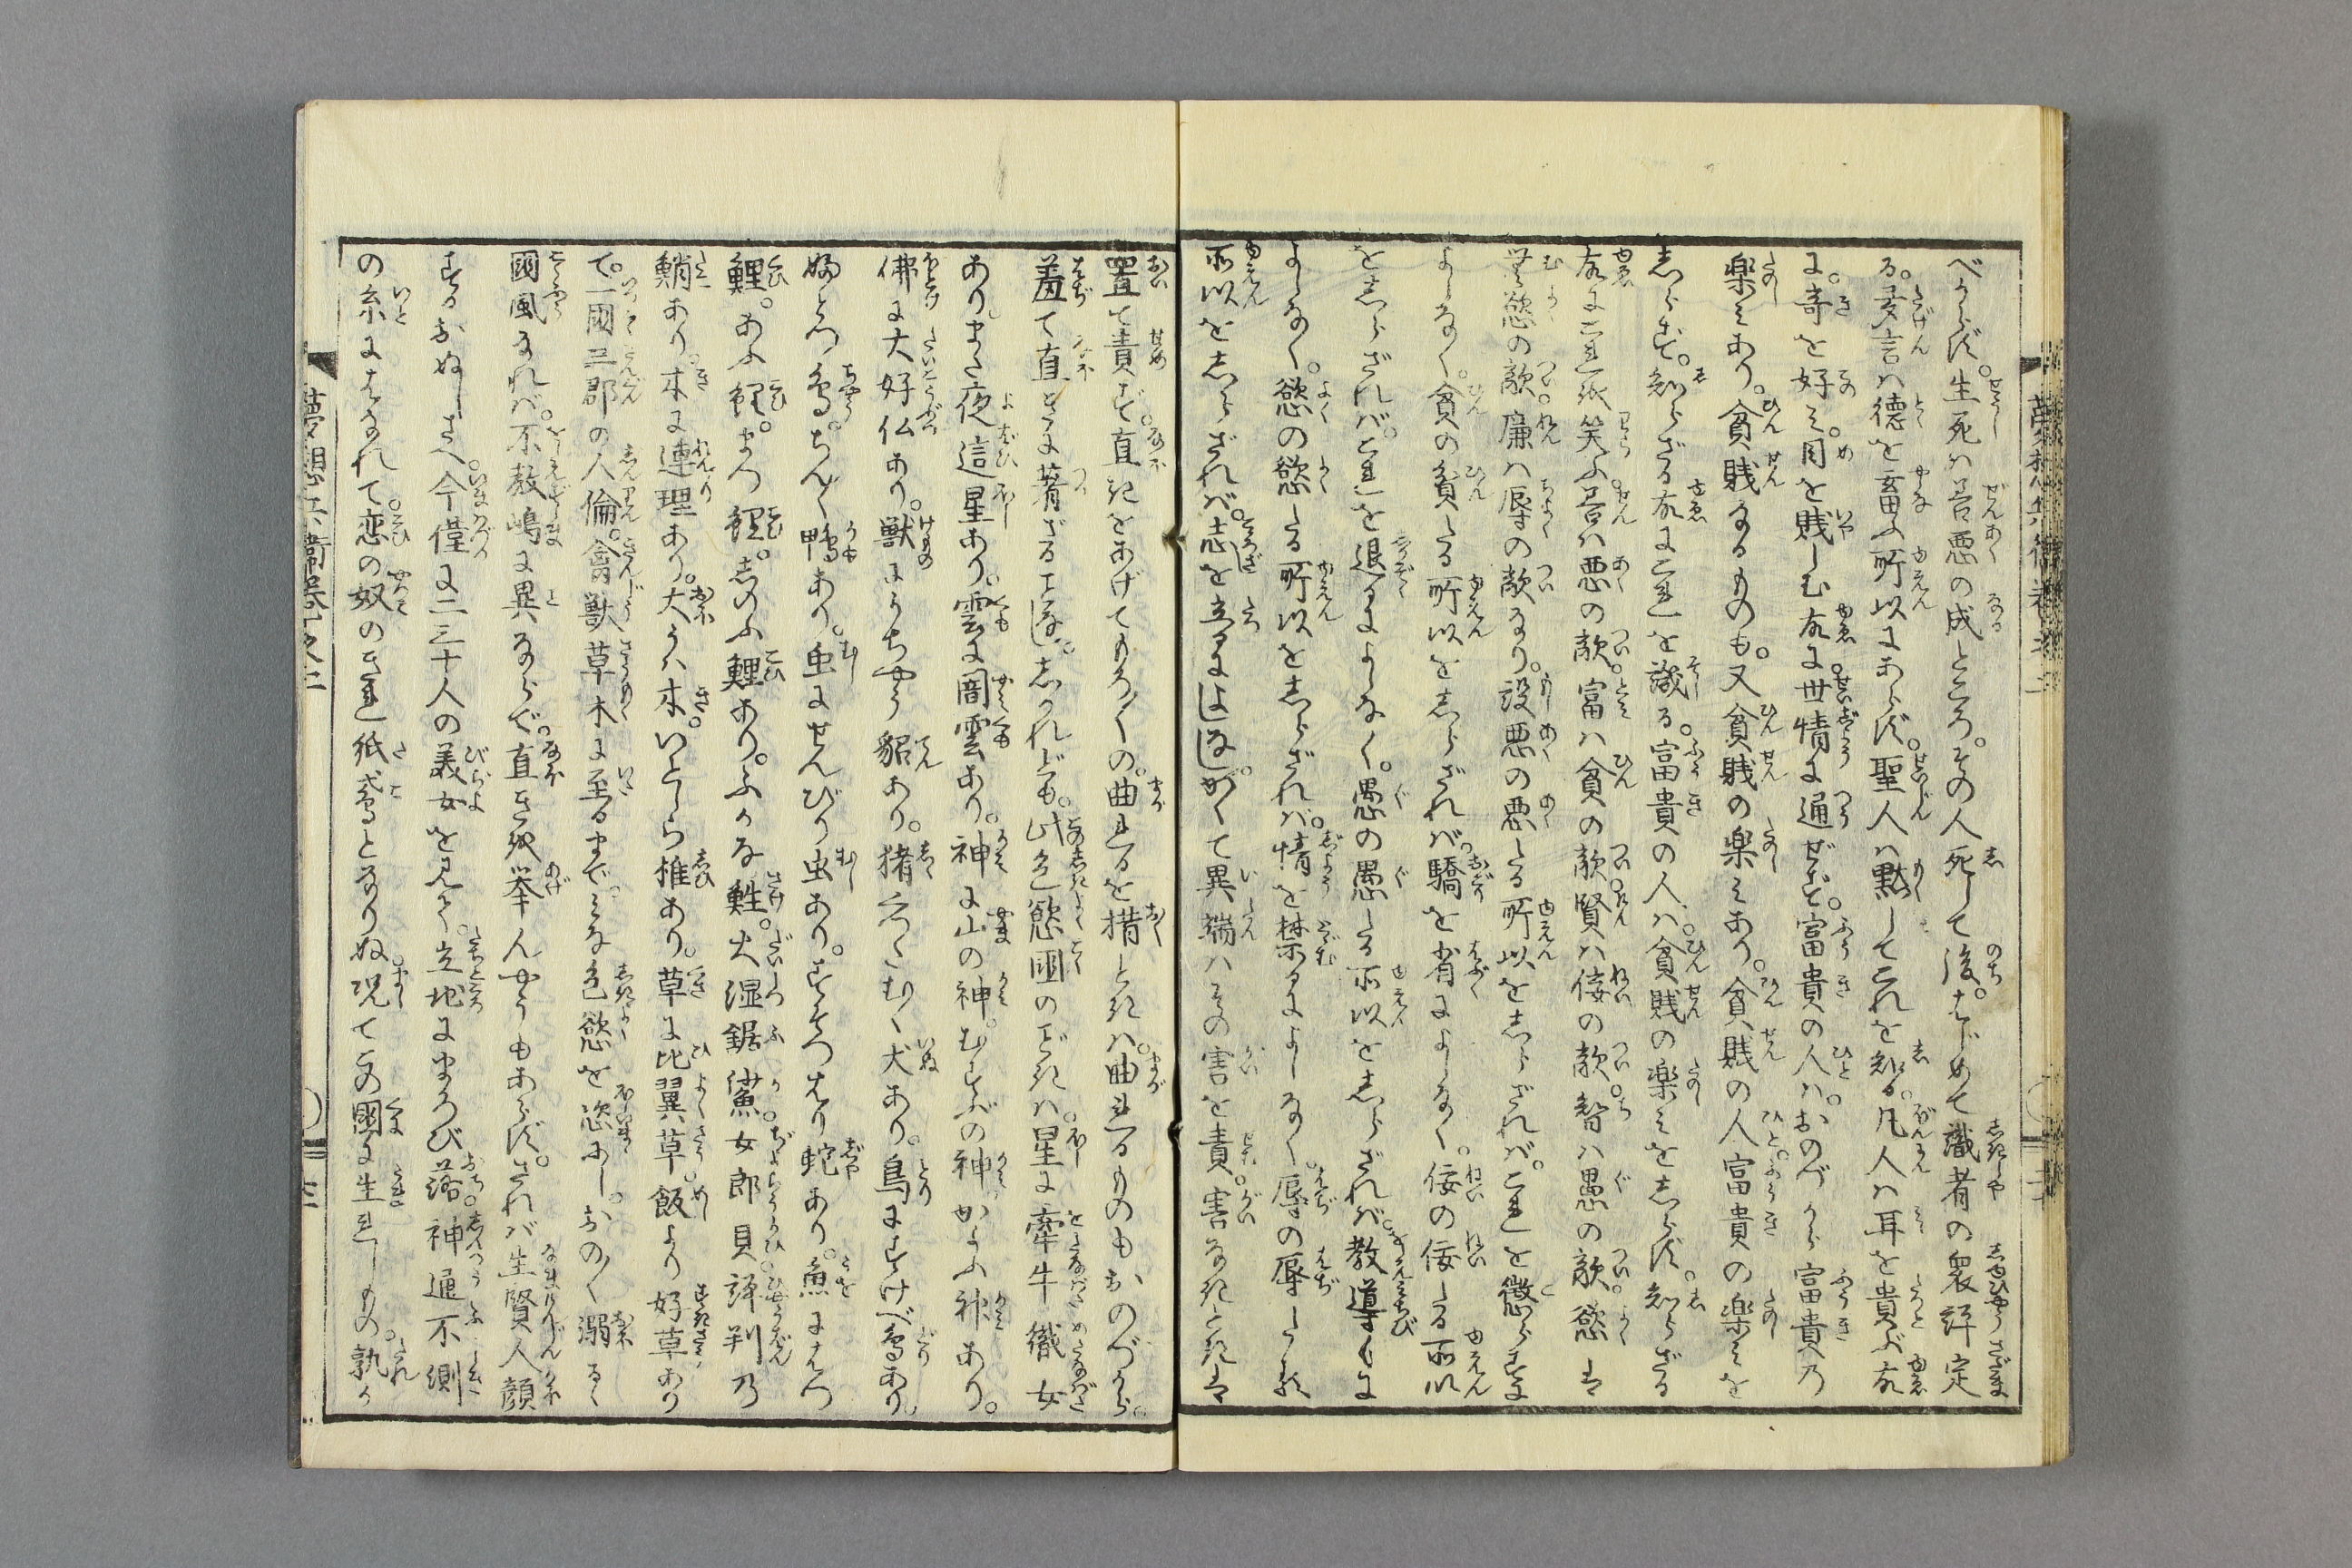 べからず。生死は善悪の成ところ。その人死して後。はじめて識者の衆評定
る。多言は徳を畜ふ所以にあらず。聖人は黙してこれを知る。凡人は耳を貴び
に。奇を好み。目を賤しむ故に。世情に通ぜず。富貴の人は。おのづから富貴の
楽みあり。貧賤なるものも。又貧賤の楽みあり。貧賤の人富貴の楽みを
しらず。知らざる故にこれを譏る。富貴の人は。貧賤の楽みをしらず。知らざる
故にこれを笑ふ。善は悪の敵。富は貧の敵。賢は佞の敵。智は愚の敵。慾は
無慾の敵。廉は辱の敵なり。設悪の悪たる所以をしらざれば。これを懲らすに
よしなく。貧の貧たる所以をしらざれば。驕を省によしなく。佞の佞たる所以
をしらざれば。これを退るによしなく。愚の愚たる所以をしらざれば。教導くに
よしなく。慾の慾たる所以をしらざれば。情を禁るによしなく。辱の辱たる
所以をしらざれば。志を立るによしなし。かくて異端はその害を責。害なきときは
置て責ず。直きをあげてもろ〳〵の。曲れるを措ときは。曲れるものもおのづから。
羞て直きに着ざることなし。しかれども。此色慾国のごときは。星に牽牛織女
あり。また夜這星あり。雲に闇雲あり。神に山の神。むすぶの神かよふ神あり。
佛に大好仏あり。獣にうちやう貂あり。猪くったむく犬あり。鳥にすけべ鳥あり。
婦とつ鳥。ちん〳〵鴨あり。虫にせんびり虫あり。すべつはり蛇あり。魚にはつ
鯉。あふ鯉。まつ鯉。しのふ鯉あり。ふかな鮏。大湿鋸鯊。女郎貝評判の
鮹あり。木に連理あり。大うは木。いとしら椎あり。草に比翼草。飯より好草あり
て。一國三郡の人倫。禽獣草木に至るまで。みな色慾を恣にし。おの〳〵溺るゝ
國風なれば。不教嶋に異ならで。直きを挙んやうもあらず。されば生賢人顔
するおぬしさへ。今僅に二三十人の美女を見て。立地にまろび落。神通不測
の糸にはなれて。恋の奴のきれ紙鳶となりぬ。况てこの國に生れしもの。孰か
夢想兵衛巻之二